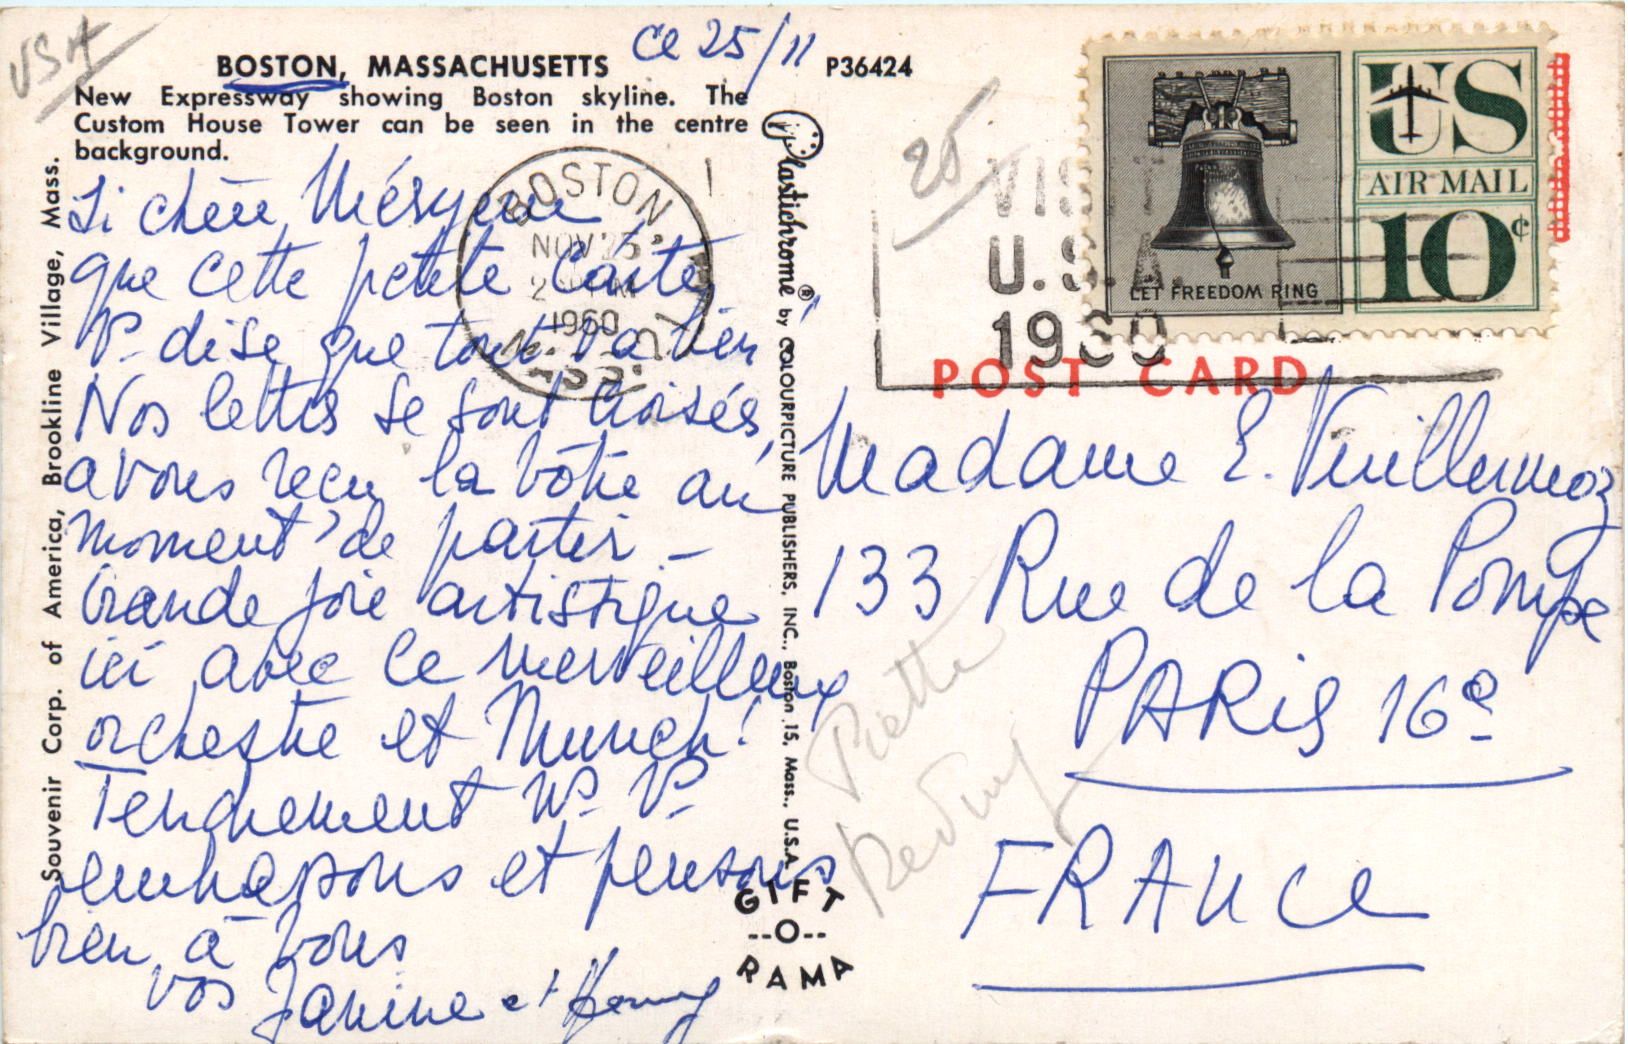 USA
BOSTON, MASSACHUSETTS
Ce 25/11
P36424
New Expressway showing Boston skyline. The
Custom House Tower can be seen in the centre
background.
Si chère
que cette petite Carte
Vs dise que tout va bien
Nos lettres se sont croisées,
avons reçu la vôtre au
moment de partir –
Grande joie artistique
ici avec ce merveilleux
orchestre et Munch !
Tendrement Ns Vs
embrassons et pensons
bien à vous
vos Janine et Henry
Souvenir Corp. of America, Brookline Village, Mass.
BOSTON
NOV 25
1960
MASS.
Plastichrome® by COLOURPICTURE PUBLISHERS, INC., Boston 15, Mass., U.S.A.
GIFT
--O--
RAMA
25
VISIT
U.S.A.
1960
LET FREEDOM RING
US
AIR MAIL
10¢
POST CARD
Madame E. Vuillermoz
133 Rue de la Pompe
PARIS 16e
FRANCE